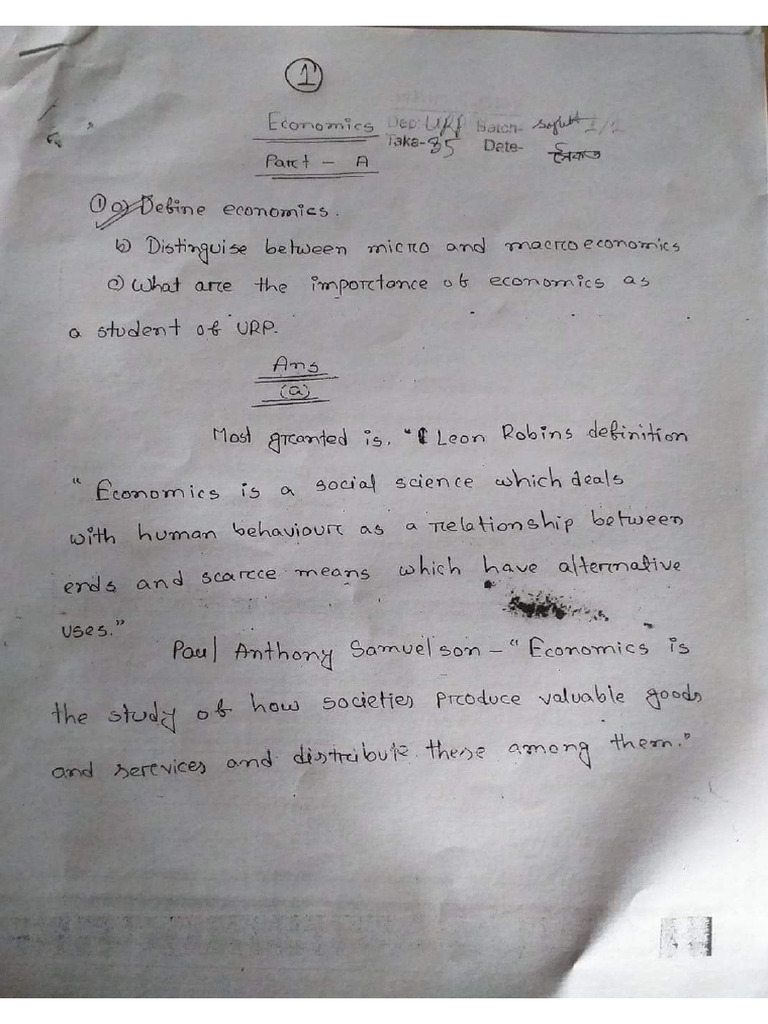 1
Economics Dep: URP Batch- 1/1
Part - A Taka-85 Date-
① a) Define economics.
b) Distinguise between micro and macroeconomics
c) What are the importance of economics as
a student of URP.
Ans
(a)
Most granted is. " Leon Robins definition
"Economics is a social science which deals
with human behaviour as a relationship between
ends and scarce means which have alternative
uses."
Paul Anthony Samuelson - "Economics is
the study of how societies produce valuable goods
and services and distribute these among them."